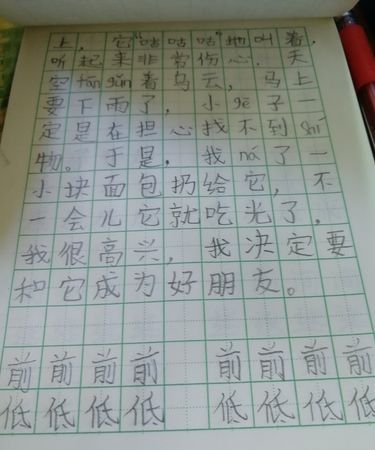 上，它“咕咕咕”地叫着，
听起来非常伤心。天
空fān gǔn着乌云，马上
要下雨了，小gē子一
定是在担心找不到shí
物。于是，我ná了一
小块面包扔给它，不
一会儿它就吃光了，
我很高兴，我决定要
和它成为好朋友。
前前前前 前前前前
低低低低 低低低低